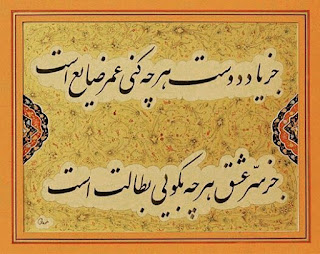 جز یاد دوست هرچه کنی عمر ضایع است
جز سرّ عشق هرچه بگویی بطالت است